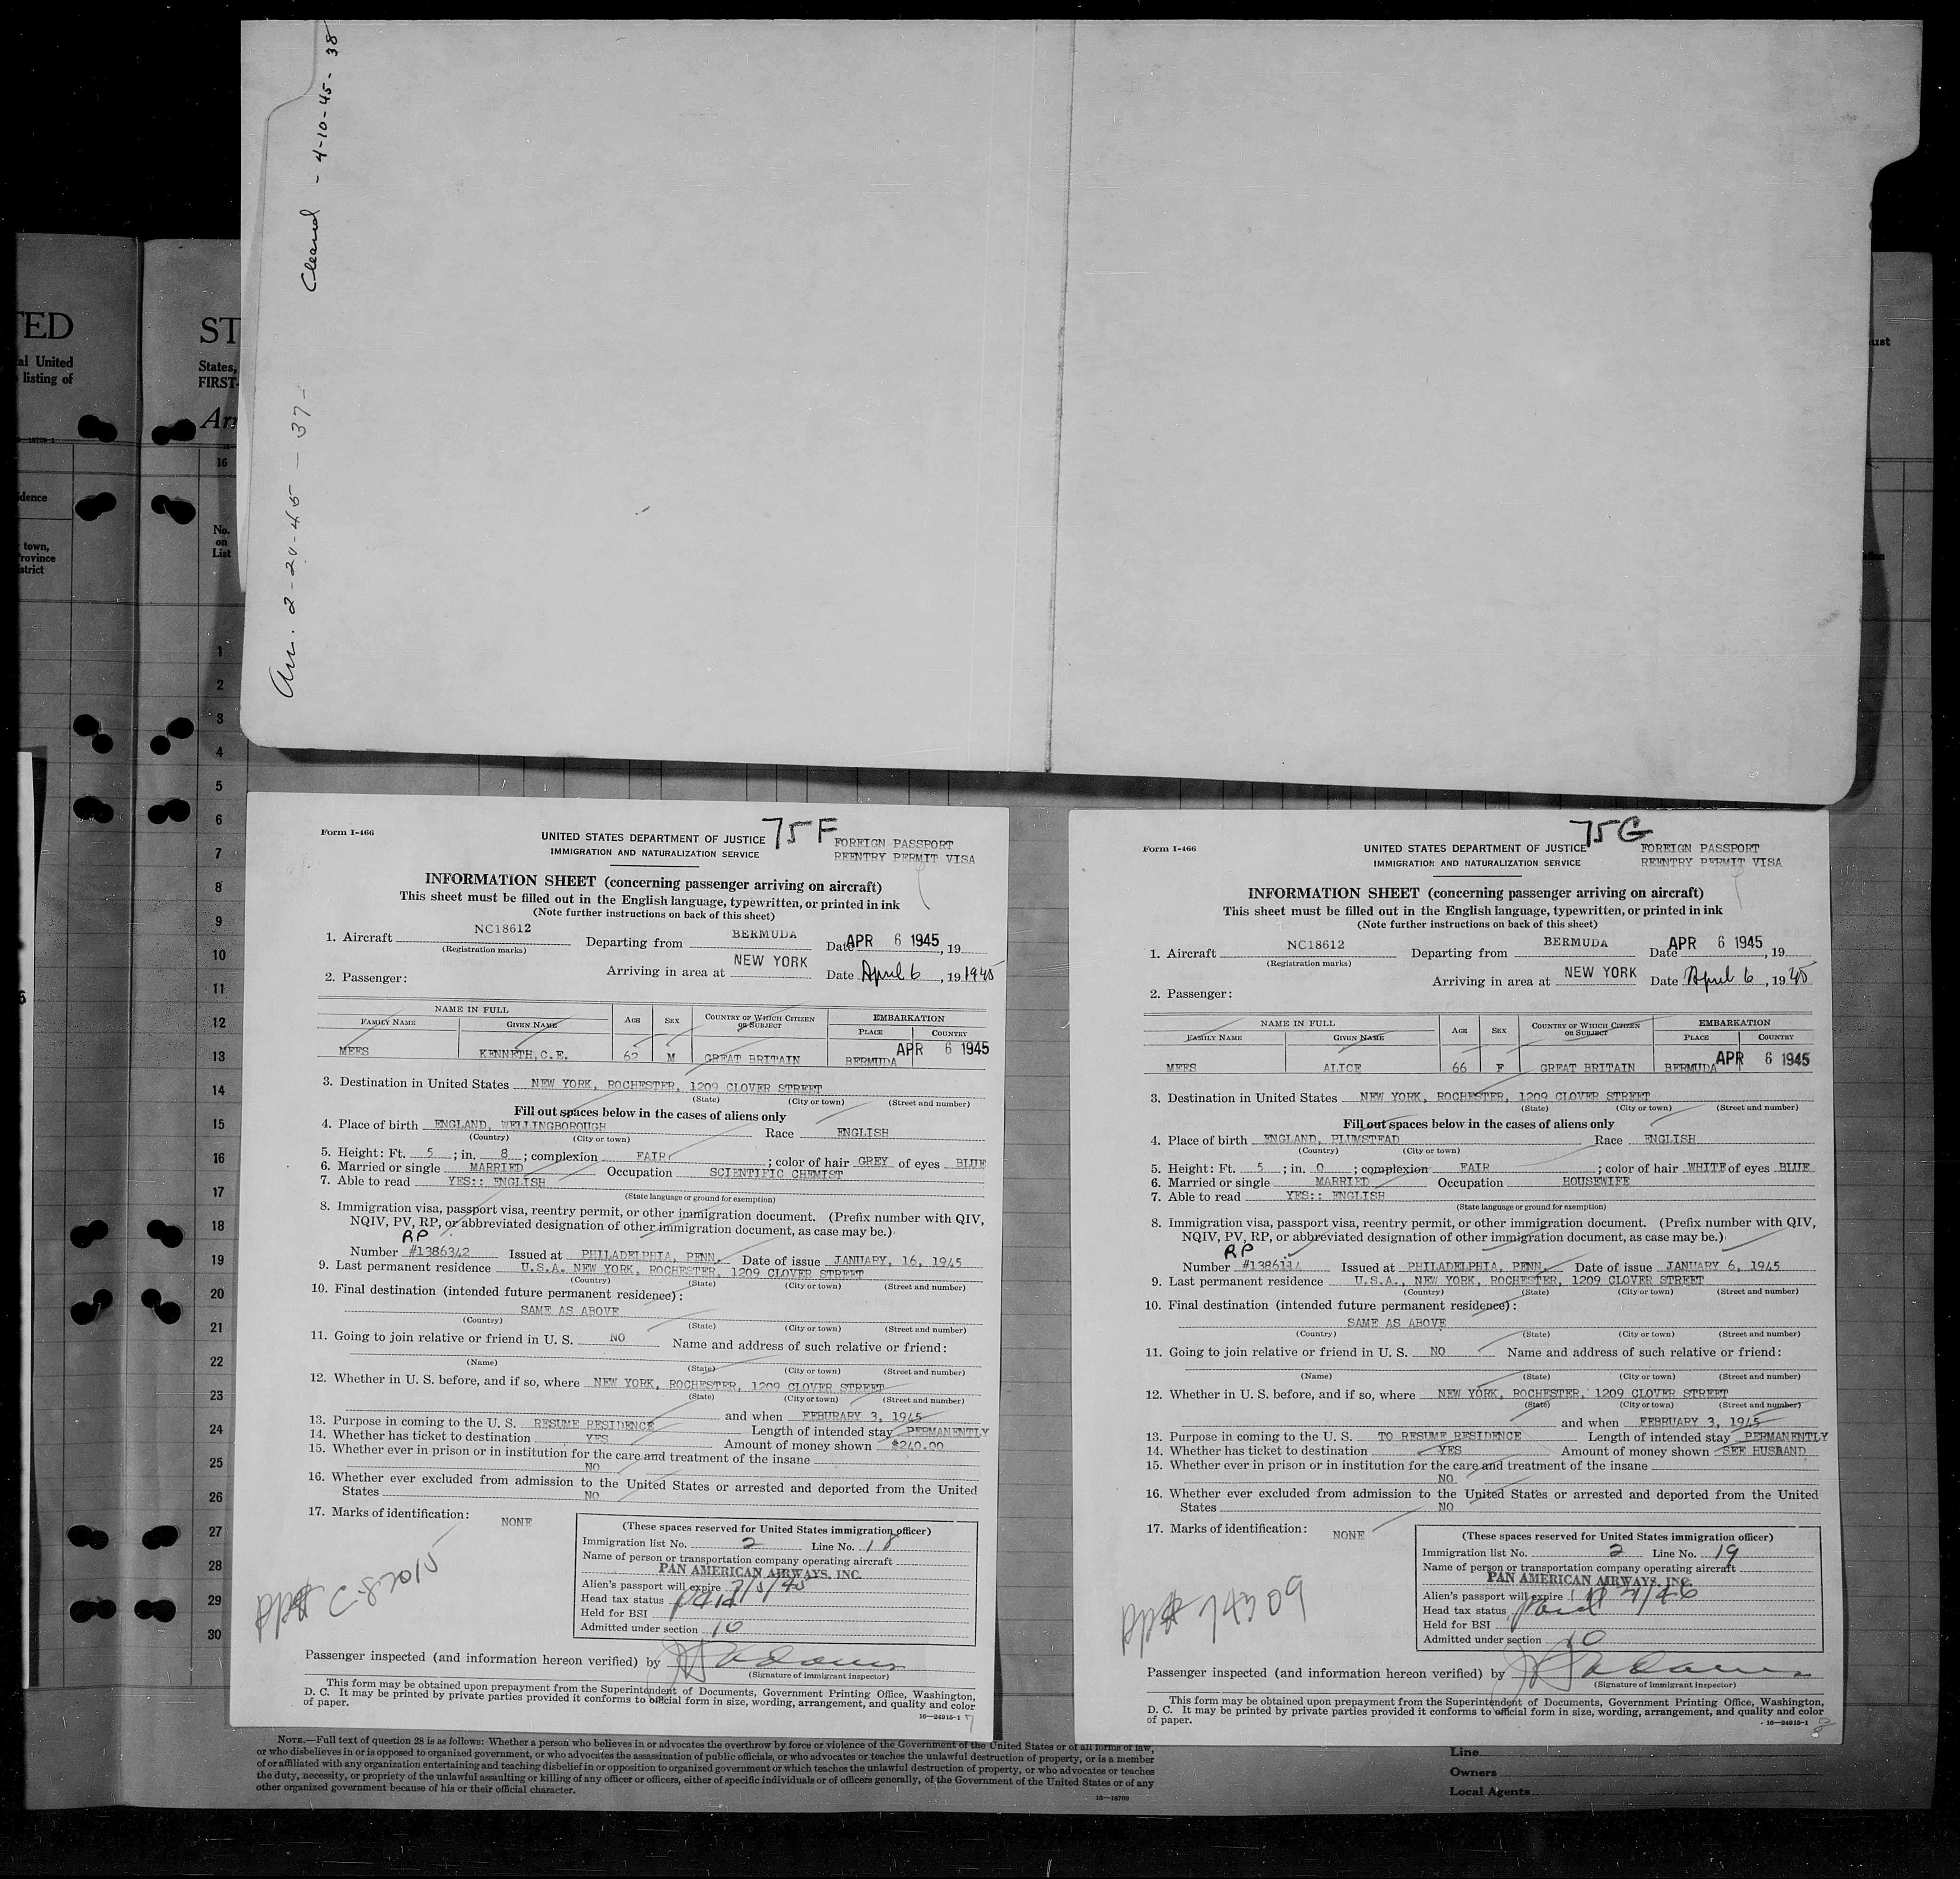 Cleared - 4-10-45- 38
Arr. 2-20-45 - 37-
TED
al United
listing of
16709-1
idence
town,
Province
strict
ST
States,
FIRST-
Arr
16
No.
on
List
1
2
3
4
5
6
7
8
9
10
11
12
13
14
15
16
17
18
19
20
21
22
23
24
25
26
27
28
29
30
ust
Form I-466
75F
UNITED STATES DEPARTMENT OF JUSTICE
IMMIGRATION AND NATURALIZATION SERVICE
FOREIGN PASSPORT
REENTRY PERMIT VISA
INFORMATION SHEET (concerning passenger arriving on aircraft)
This sheet must be filled out in the English language, typewritten, or printed in ink
(Note further instructions on back of this sheet)
1. Aircraft NC18612 Departing from BERMUDA Date APR 6 1945, 19
(Registration marks)
Arriving in area at NEW YORK Date April 6, 19 1945
2. Passenger:
NAME IN FULL AGE SEX COUNTRY OF WHICH CITIZEN OR SUBJECT EMBARKATION
FAMILY NAME GIVEN NAME PLACE COUNTRY
MEES KENNETH,C.E. 62 M GREAT BRITAIN BERMUDA APR 6 1945
3. Destination in United States NEW YORK, ROCHESTER, 1209 CLOVER STREET
(State) (City or town) (Street and number)
Fill out spaces below in the cases of aliens only
4. Place of birth ENGLAND, WELLINGBOROUGH Race ENGLISH
(Country) (City or town)
5. Height: Ft. 5 ; in. 8 ; complexion FAIR ; color of hair GREY of eyes BLUE
6. Married or single MARRIED Occupation SCIENTIFIC CHEMIST
7. Able to read YES:: ENGLISH
(State language or ground for exemption)
8. Immigration visa, passport visa, reentry permit, or other immigration document. (Prefix number with QIV,
NQIV, PV, RP, or abbreviated designation of other immigration document, as case may be.)
RP
Number #1386342 Issued at PHILADELPHIA, PENN. Date of issue JANUARY, 16, 1945
9. Last permanent residence U.S.A. NEW YORK, ROCHESTER, 1209 CLOVER STREET
(Country) (State) (City or town) (Street and number)
10. Final destination (intended future permanent residence):
SAME AS ABOVE
(Country) (State) (City or town) (Street and number)
11. Going to join relative or friend in U. S. NO Name and address of such relative or friend:
(Name) (State) (City or town) (Street and number)
12. Whether in U. S. before, and if so, where NEW YORK, ROCHESTER, 1209 CLOVER STREET
(State) (City or town) (Street and number)
and when FEBURARY 3, 1945
13. Purpose in coming to the U. S. RESUME RESIDENCE Length of intended stay PERMANENTLY
14. Whether has ticket to destination YES Amount of money shown $240.00
15. Whether ever in prison or in institution for the care and treatment of the insane
NO
16. Whether ever excluded from admission to the United States or arrested and deported from the United
States NO
17. Marks of identification: NONE
pp# C-82015
(These spaces reserved for United States immigration officer)
Immigration list No. 2 Line No. 18
Name of person or transportation company operating aircraft
PAN AMERICAN AIRWAYS, INC.
Alien's passport will expire
Head tax status Paid
Held for BSI
Admitted under section 10
Passenger inspected (and information hereon verified) by
(Signature of immigrant inspector)
This form may be obtained upon prepayment from the Superintendent of Documents, Government Printing Office, Washington,
D. C. It may be printed by private parties provided it conforms to official form in size, wording, arrangement, and quality and color
of paper.
16—24915-1 7
Form I-466
75G
UNITED STATES DEPARTMENT OF JUSTICE
IMMIGRATION AND NATURALIZATION SERVICE
FOREIGN PASSPORT
REENTRY PERMIT VISA
INFORMATION SHEET (concerning passenger arriving on aircraft)
This sheet must be filled out in the English language, typewritten, or printed in ink
(Note further instructions on back of this sheet)
1. Aircraft NC18612 Departing from BERMUDA Date APR 6 1945, 19
(Registration marks)
Arriving in area at NEW YORK Date April 6, 19 45
2. Passenger:
NAME IN FULL AGE SEX COUNTRY OF WHICH CITIZEN OR SUBJECT EMBARKATION
FAMILY NAME GIVEN NAME PLACE COUNTRY
MEES ALICE 66 F GREAT BRITAIN BERMUDA APR 6 1945
3. Destination in United States NEW YORK, ROCHESTER, 1209 CLOVER STREET
(State) (City or town) (Street and number)
Fill out spaces below in the cases of aliens only
4. Place of birth ENGLAND, PLUMSTEAD Race ENGLISH
(Country) (City or town)
5. Height: Ft. 5 ; in. 0 ; complexion FAIR ; color of hair WHITE of eyes BLUE
6. Married or single MARRIED Occupation HOUSEWIFE
7. Able to read YES:: ENGLISH
(State language or ground for exemption)
8. Immigration visa, passport visa, reentry permit, or other immigration document. (Prefix number with QIV,
NQIV, PV, RP, or abbreviated designation of other immigration document, as case may be.)
RP
Number Issued at PHILADELPHIA, PENN. Date of issue JANUARY 6, 1945
9. Last permanent residence U.S.A., NEW YORK, ROCHESTER, 1209 CLOVER STREET
(Country) (State) (City or town) (Street and number)
10. Final destination (intended future permanent residence):
SAME AS ABOVE
(Country) (State) (City or town) (Street and number)
11. Going to join relative or friend in U. S. NO Name and address of such relative or friend:
(Name) (State) (City or town) (Street and number)
12. Whether in U. S. before, and if so, where NEW YORK, ROCHESTER, 1209 CLOVER STREET
(State) (City or town) (Street and number)
and when FEBRUARY 3, 1945
13. Purpose in coming to the U. S. TO RESUME RESIDENCE Length of intended stay PERMANENTLY
14. Whether has ticket to destination YES Amount of money shown SEE HUSBAND
15. Whether ever in prison or in institution for the care and treatment of the insane
NO
16. Whether ever excluded from admission to the United States or arrested and deported from the United
States NO
17. Marks of identification: NONE
pp# 74309
(These spaces reserved for United States immigration officer)
Immigration list No. 2 Line No. 19
Name of person or transportation company operating aircraft
PAN AMERICAN AIRWAYS, INC.
Alien's passport will expire
Head tax status Paid
Held for BSI
Admitted under section 10
Passenger inspected (and information hereon verified) by
(Signature of immigrant inspector)
This form may be obtained upon prepayment from the Superintendent of Documents, Government Printing Office, Washington,
D. C. It may be printed by private parties provided it conforms to official form in size, wording, arrangement, and quality and color
of paper.
16—24915-1 8
NOTE.—Full text of question 28 is as follows: Whether a person who believes in or advocates the overthrow by force or violence of the Government of the United States or of all forms of law,
or who disbelieves in or is opposed to organized government, or who advocates the assassination of public officials, or who advocates or teaches the unlawful destruction of property, or is a member
of or affiliated with any organization entertaining and teaching disbelief in or opposition to organized government or which teaches the unlawful destruction of property, or who advocates or teaches
the duty, necessity, or propriety of the unlawful assaulting or killing of any officer or officers, either of specific individuals or of officers generally, of the Government of the United States or of any
other organized government because of his or their official character.
16—16709
Line
Owners
Local Agents